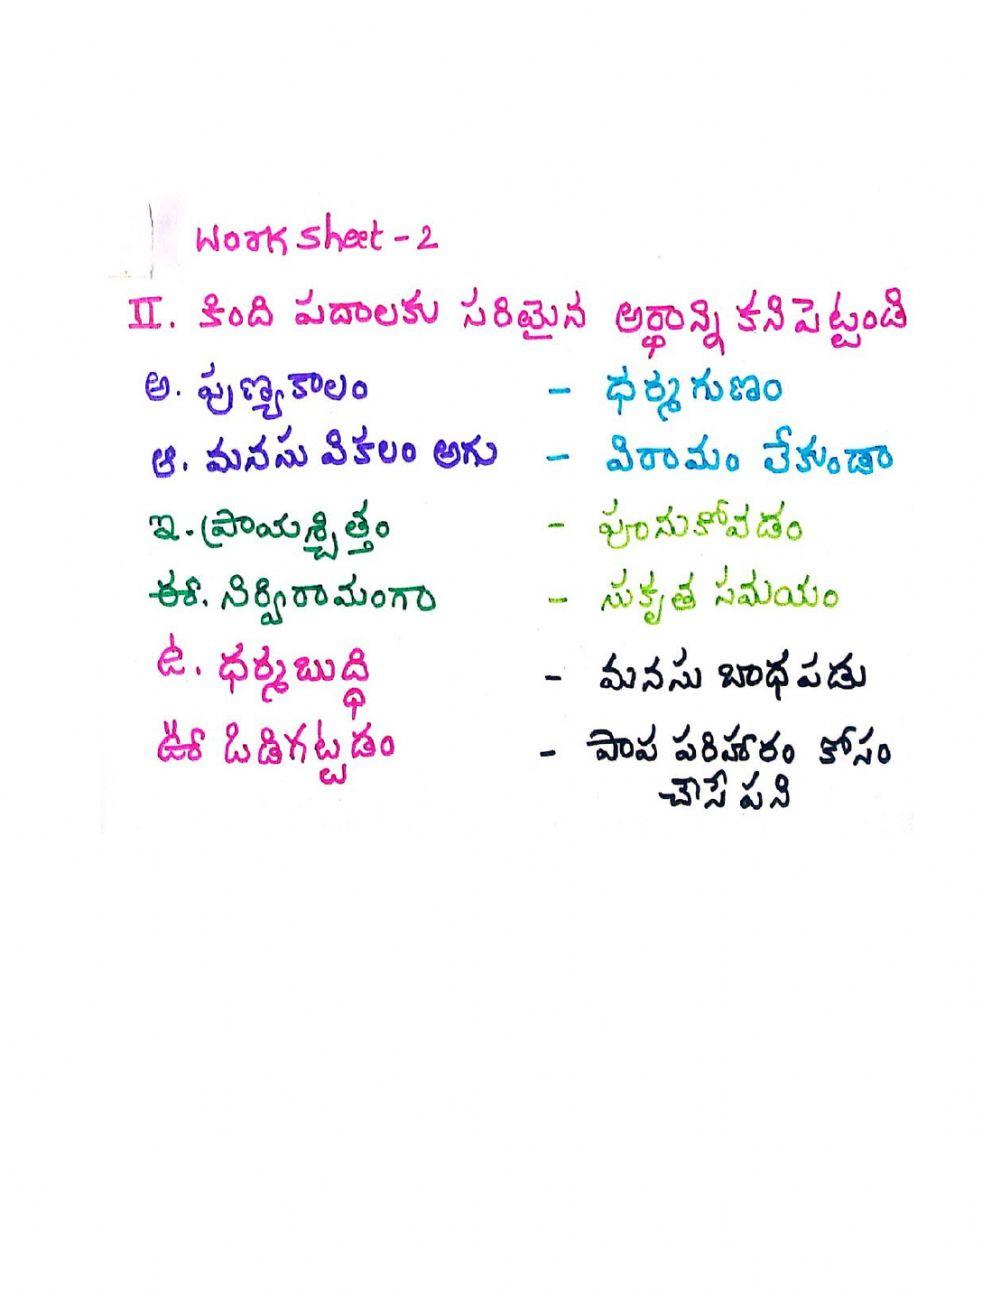 Work Sheet - 2
II. కింది పదాలకు సరియైన అర్థాన్ని కనిపెట్టండి
అ. పుణ్యకాలం - ధర్మగుణం
ఆ. మనసు వికలం అగు - విరామం లేకుండా
ఇ. ప్రాయశ్చిత్తం - పూనుకోవడం
ఈ. నిర్విరామంగా - సుకృత సమయం
ఉ. ధర్మబుద్ధి - మనసు బాధపడు
ఊ ఒడిగట్టడం - పాప పరిహారం కోసం
చేసే పని